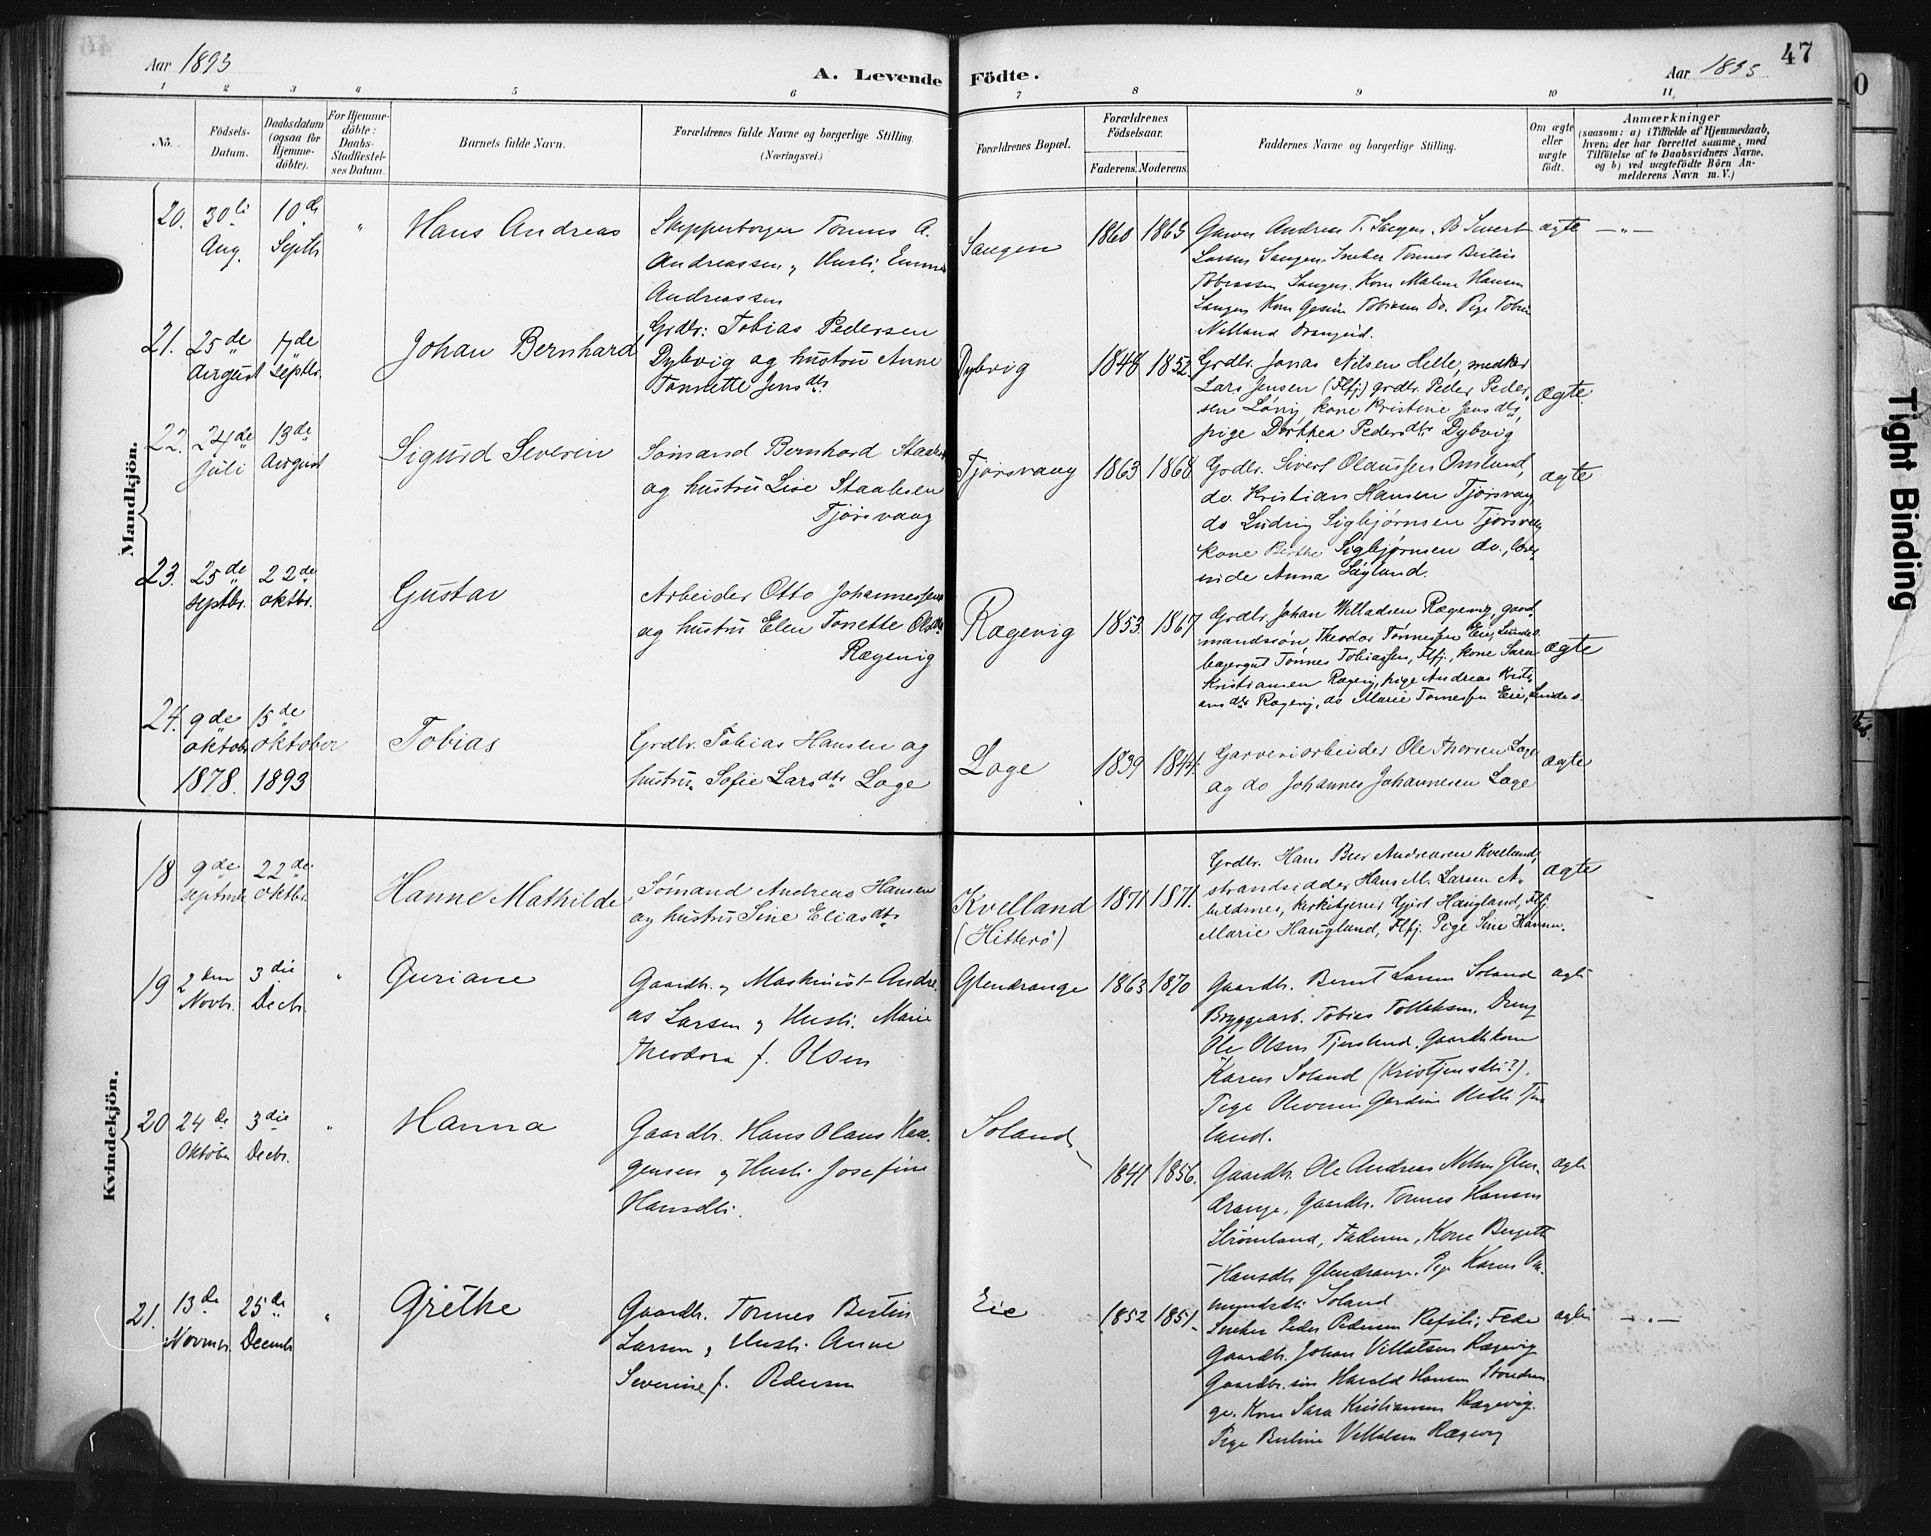 Aar 1893
A. Levende Födte.
Aar 1893
47
1 2 3 4 5 6 7 8 9 10 11
No.
Födsels-
Datum.
Daabsdatum
(ogsaa for
Hjemme-
döbte).
For Hjemme-
döbte:
Daabs-
Stadfæstel-
ses Datum.
Barnets fulde Navn.
Forældrenes fulde Navne og borgerlige Stilling.
(Næringsvei.)
Forældrenes Bopæl.
Forældrenes
Födselsaar.
Faderens. Moderens.
Faddernes Navne og borgerlige Stilling.
Om ægte
eller
uægte
födt.
Anmærkninger
(saasom: a) i Tilfælde af Hjemmedaab,
hvem der har forrettet samme, med
Tilföielse af to Daabsvidners Navne,
og b) ved uægtefödte Börn An-
melderens Navn m. V.)
Mandkjön.
20. 30 Aug. 10 de Septb. " Hans Andreas
Skipperborger Tønnes A.
Andreassen og Hustr. Emma
Andreassen
Saugen 1860 1863
Garver Andreas T. Saugen, Do Sivert
Larsen Saugen. Sneker Tønnes Bertin
Tobiassen Saugen. Kone Malene Hansen
Saugen Kone Gesine Tobiesen Do. Pige Tobine
Drangeid.
ægte — " —
21. 25 de August 7 de Septbr. Johan Bernhard
Grdbr: Tobias Pedersen
Dybvig og hustru Anne
Tonnette Jensdtr
Dybvig 1848 1852.
Grdbr. Jonas Nilsen Helle,
Lars Jensen (Flfj.) grdbr. Peder Peder-
sen Løvig, kone Kristine Jensdtr,
pige Dorthea Pedersdtr Dybvig
ægte.
22. 24 de Juli 13 de August Sigurd Severin
Sømand Bernhard Staalesen
og hustru Lise Staalesen
Tjørsvaag
Tjørsvaag 1863 1868
Grdbr. Sivert Olaussen Omland,
do. Kristian Hansen Tjørsvaag,
do Ludvig Sigbjørnsen Tjørsvaag
kone Berthe Sigbjørnsen do.,
Anna
ægte
23. 25 de Septbr. 22 de oktbr. Gustav
Arbeider Otto Johannessen
og hustru Elen Tonette Olsdtr
Rægevig
Rægevig 1853. 1867
Grdbr. Johan Willadsen Rægevig, gaard-
mandssøn Theodor Tønnessen Eie,
Tønnes Tobiassen, Flfj., kone Sara
Kristiansen Rægevig, pige Andrea Kristi-
ansdtr Rægevig, do Marie Tønnessen Eie,
ægte
24. 9 de oktober 1878. 15 de oktober 1893 Tobias
Grdbr. Tobias Hansen og
hustru Sofie Larsdtr Loge
Loge 1839 1844.
Garveriarbeider Ole Thorsen Loge
og do Johannes Johannesen Loge
ægte
Kvindekjön.
18 9 de septemb 22 de oktbr. Hanne Mathilde
Sømand Andreas Hansen
og hustru Sine Eliasdtr
Kvelland
(Hitterö)
1871 1871.
Grdbr. Hans Andreasen Kvelland,
strandsidder Hans M. Larsen A-
bildsnes, kirketjener Gjert Haugland, Flfj.
Marie Haugland, Flfj. Pige Sine Hansen.
ægte
19 2 den Novbr. 3 die Decbr. " Guriane
Gaardbr. og Maskinist Andre-
as Larsen og Hustr. Marie
Theodora f. Olsen
Glendrange 1863 1870
Gaardbr. Bernt Larsen Soland
Bryggearb. Tobias Tollaksen, Dreng
Ole Olsen Tjersland. Gaardbkone
Karen Soland (Kristjensdtr?).
Pige
land.
ægte
20 24 de Oktober 3 die Decbr. " Hanna
Gaardbr. Hans Olaus Haa-
gensen og Hustr. Josefine
Hansdtr.
Soland
1841 1856.
Gaardbr. Ole Andreas Nilsen Glen-
drange, Gaardbr. Tønnes Hansen
Strømland, Faderen, Kone Bergitte
Hansdtr Glendrange. Pige Karen A-
mundsdtr Soland
ægte
21. 13 de Novembr. 25 de Decembr " Grethe
Gaardbr. Tønnes Bertin
Larsen og Hustr. Anne
Severine f. Pedersen
Eie 1852 1851.
Snekker Peder Pedersen Refsti, Feda
Gaardbr. Johan Villatsen Rægevig
Gaardbr. søn Harald Hansen
Kone Sara Kristiansen Rægevig.
Pige Bertine Villatsen Rægevig
ægte — " —
Tight Binding
0